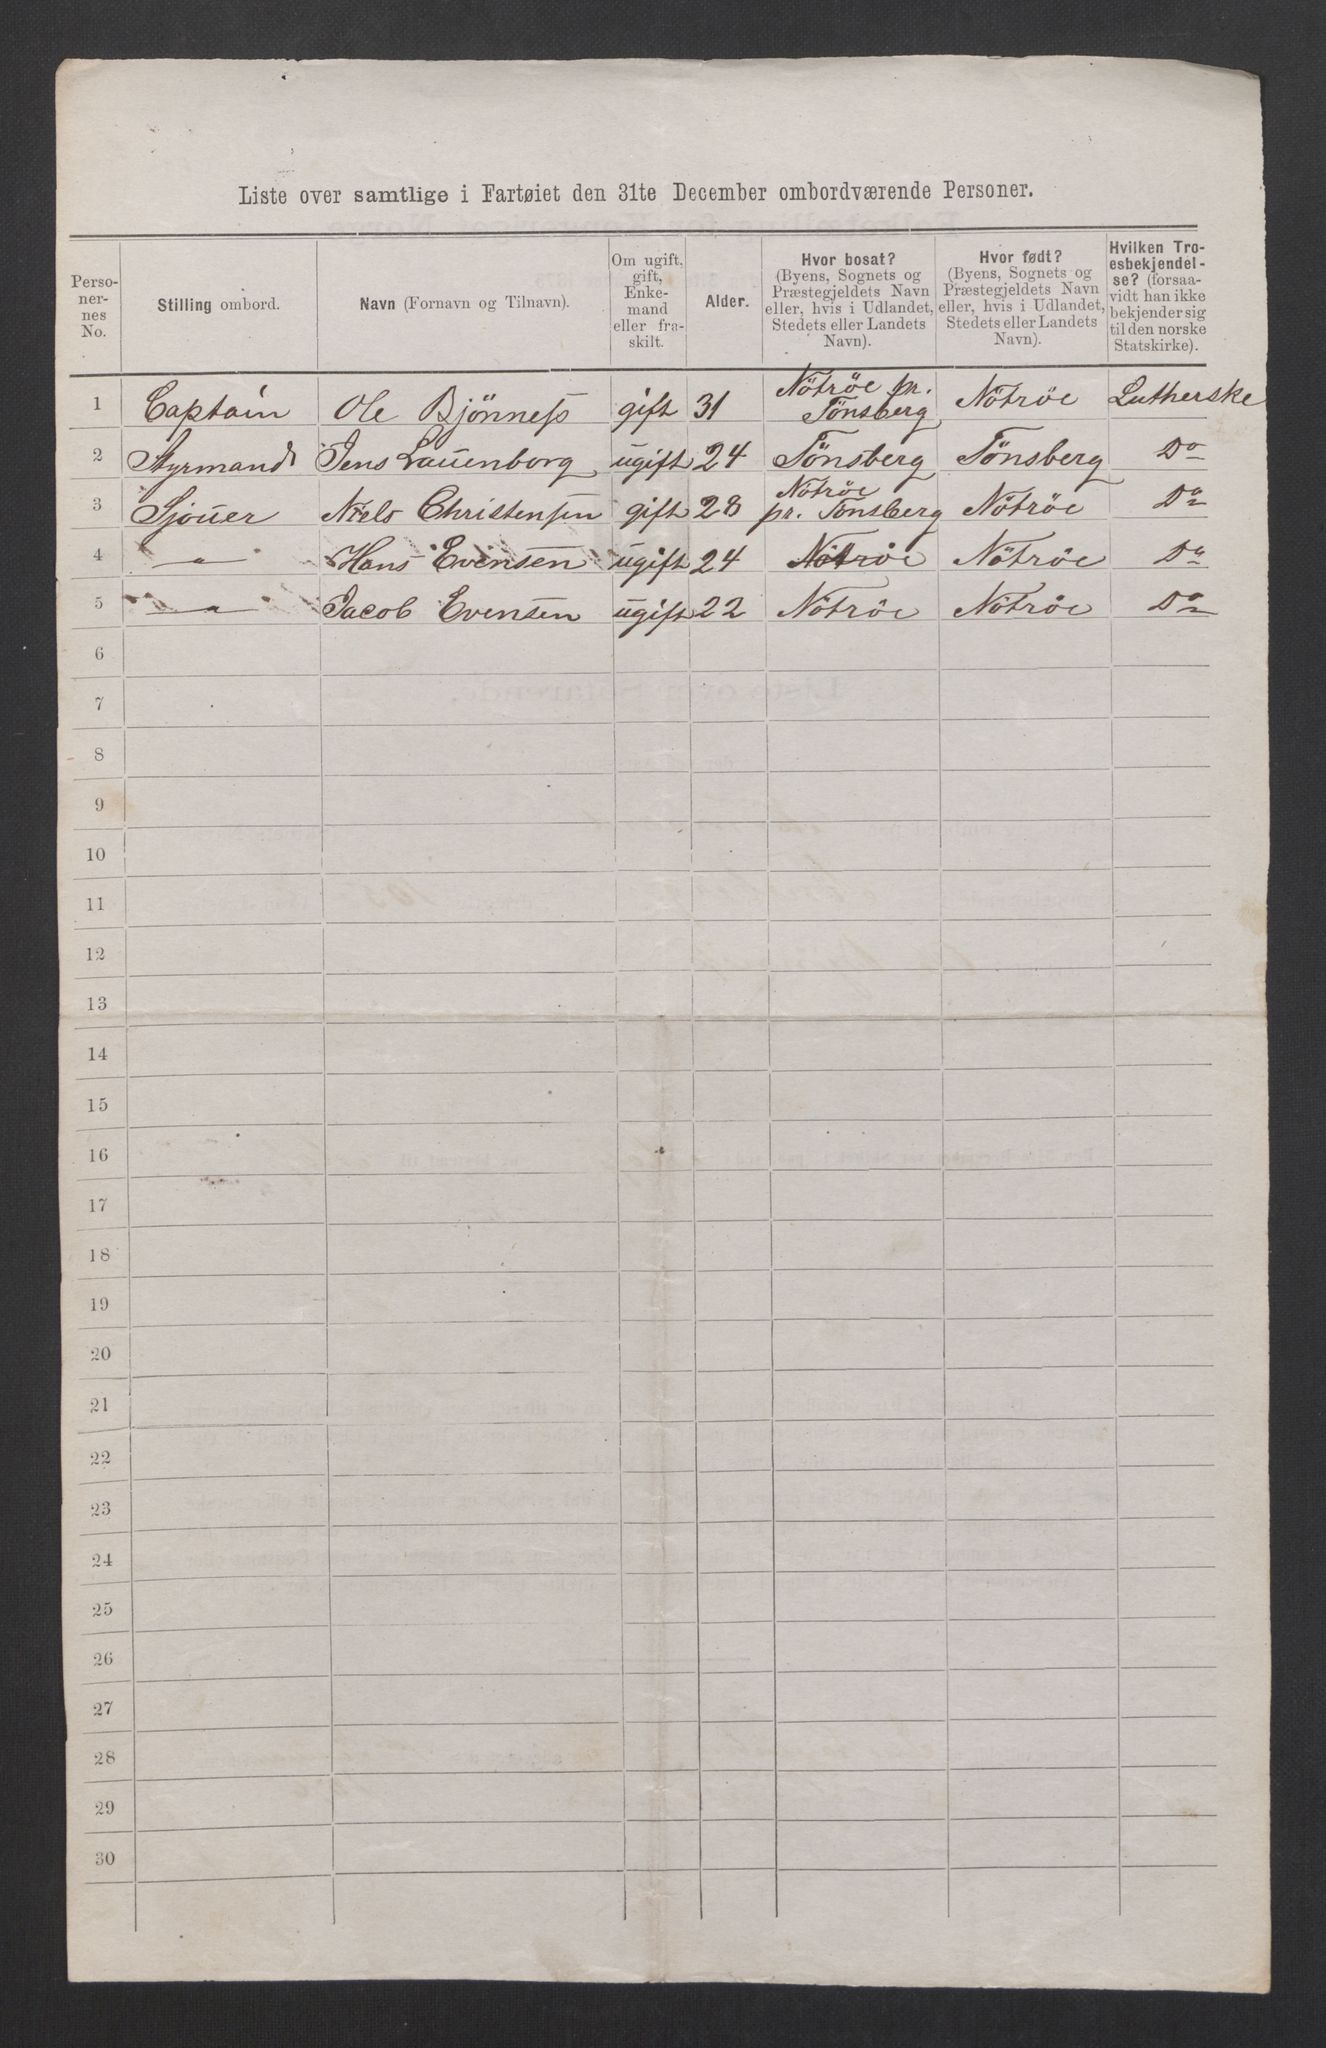 Liste over samtlige i Fartøiet den 31te December ombordværende Personer.
Perso-
ner-
nes
No.
Stilling ombord.
Navn (Fornavn og Tilnavn).
Om ugift,
gift,
Enke-
mand
eller fra-
skilt.
Alder.
Hvor bosat?
(Byens, Sognets og
Præstegjeldets Navn
eller, hvis i Udlandet,
Stedets eller Landets
Navn).
Hvor født?
(Byens, Sognets og
Præstegjeldets Navn
eller, hvis i Udlandet,
Stedets eller Landets
Navn).
Hvilken Tro-
esbekjendel-
se? (forsaa-
vidt han ikke
bekjender sig
til den norske
Statskirke).
1 Captain Ole Bjönness gift 31 Nötröe pr. Tönsberg Nötröe Lutherske
2 Styrmand Jens Lauenborg ugift 24 Tönsberg Tönsberg Do
3 Sjouer Niels Christensen gift 28 Nötröe pr. Tönsberg Nötröe Do
4 " Hans Evensen ugift 24 Nötröe Nötröe Do
5 " Jacob Evensen ugift 22 Nötröe Nötröe Do
6
7
8
9
10
11
12
13
14
15
16
17
18
19
20
21
22
23
24
25
26
27
28
29
30